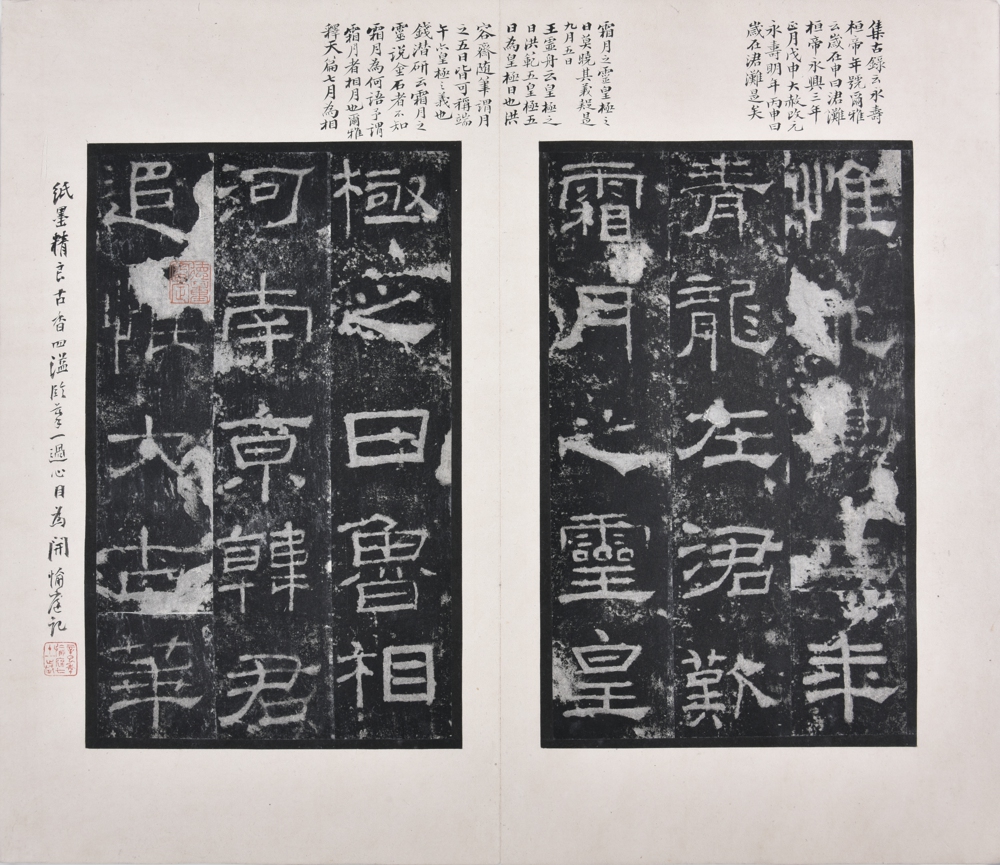 集古錄云永壽
桓帝年號爾雅
云歲在申曰涒灘
桓帝永興三年
正月戊申大赦改元
永壽明年丙申曰
歲在涒灘是矣
霜月之靈皇極之
日莫曉其義疑是
九月五日
王靈舟云皇極之
日洪範五皇極五
日為皇極日也洪
容齋隨筆謂月
之五日皆可稱端
午亦皇極之義也
錢潛研云霜月之
靈說金石者不知
霜月為何語予謂
霜月者相月也爾雅
釋天篇七月為相
惟永壽二年
青龍在涒歎
霜月之靈皇
極之日魯相
河南京韓君
追惟大古華
紙墨精良古香四溢臨摹一過心目為開愉庭記